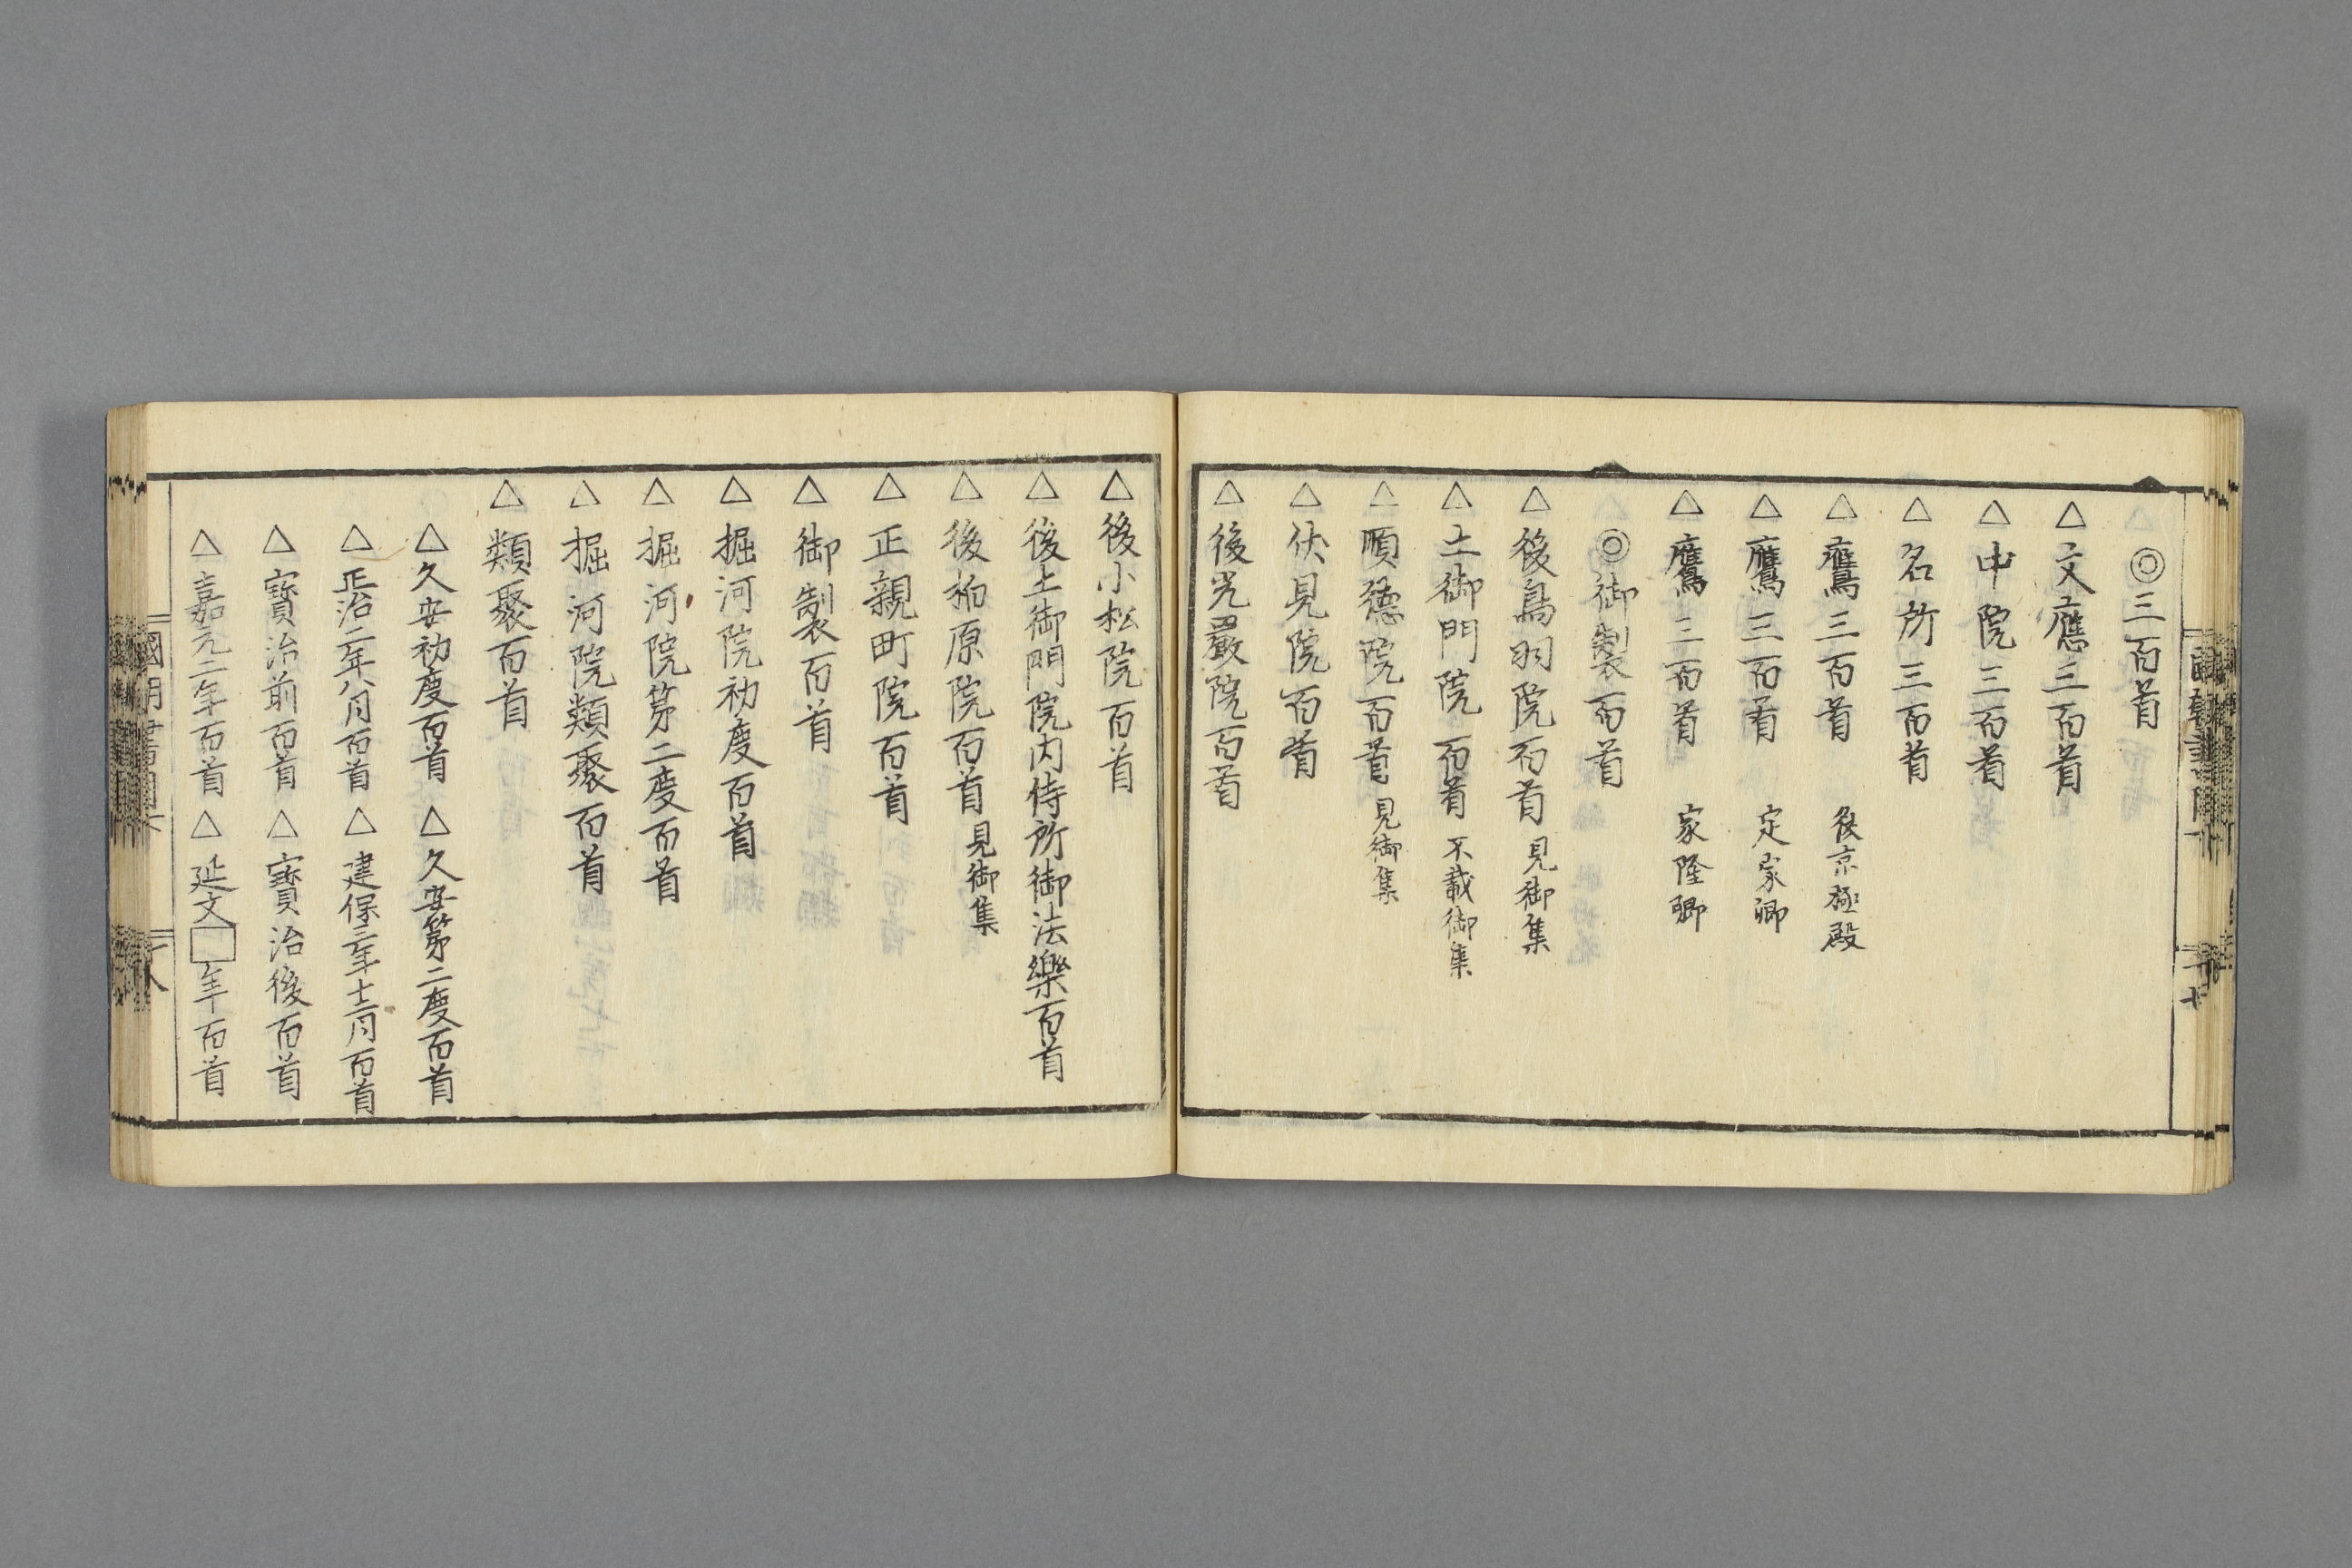 ◎三百首
△文應三百首
△中院三百首
△名所三百首
△鷹三百首 後京極殿
△鷹三百首 定家卿
△鷹三百首 家隆卿
◎御製百首
△後鳥羽院百首 見御集
△土御門院百首 不載御集
△順德院百首 見御集
△伏見院百首
△後光嚴院百首
△後小松院百首
△後土御門院内侍所御法樂百首
△後柏原院百首 見御集
△正親町院百首
△御製百首
△掘河院初度百首
△掘河院第二度百首
△掘河院類聚百首
△類聚百首
△久安初度百首 △久安第二度百首
△正治二年八月百首 △建保三年十二月百首
△寶治前百首 △寶治後百首
△嘉元二年百首 △延文□年百首